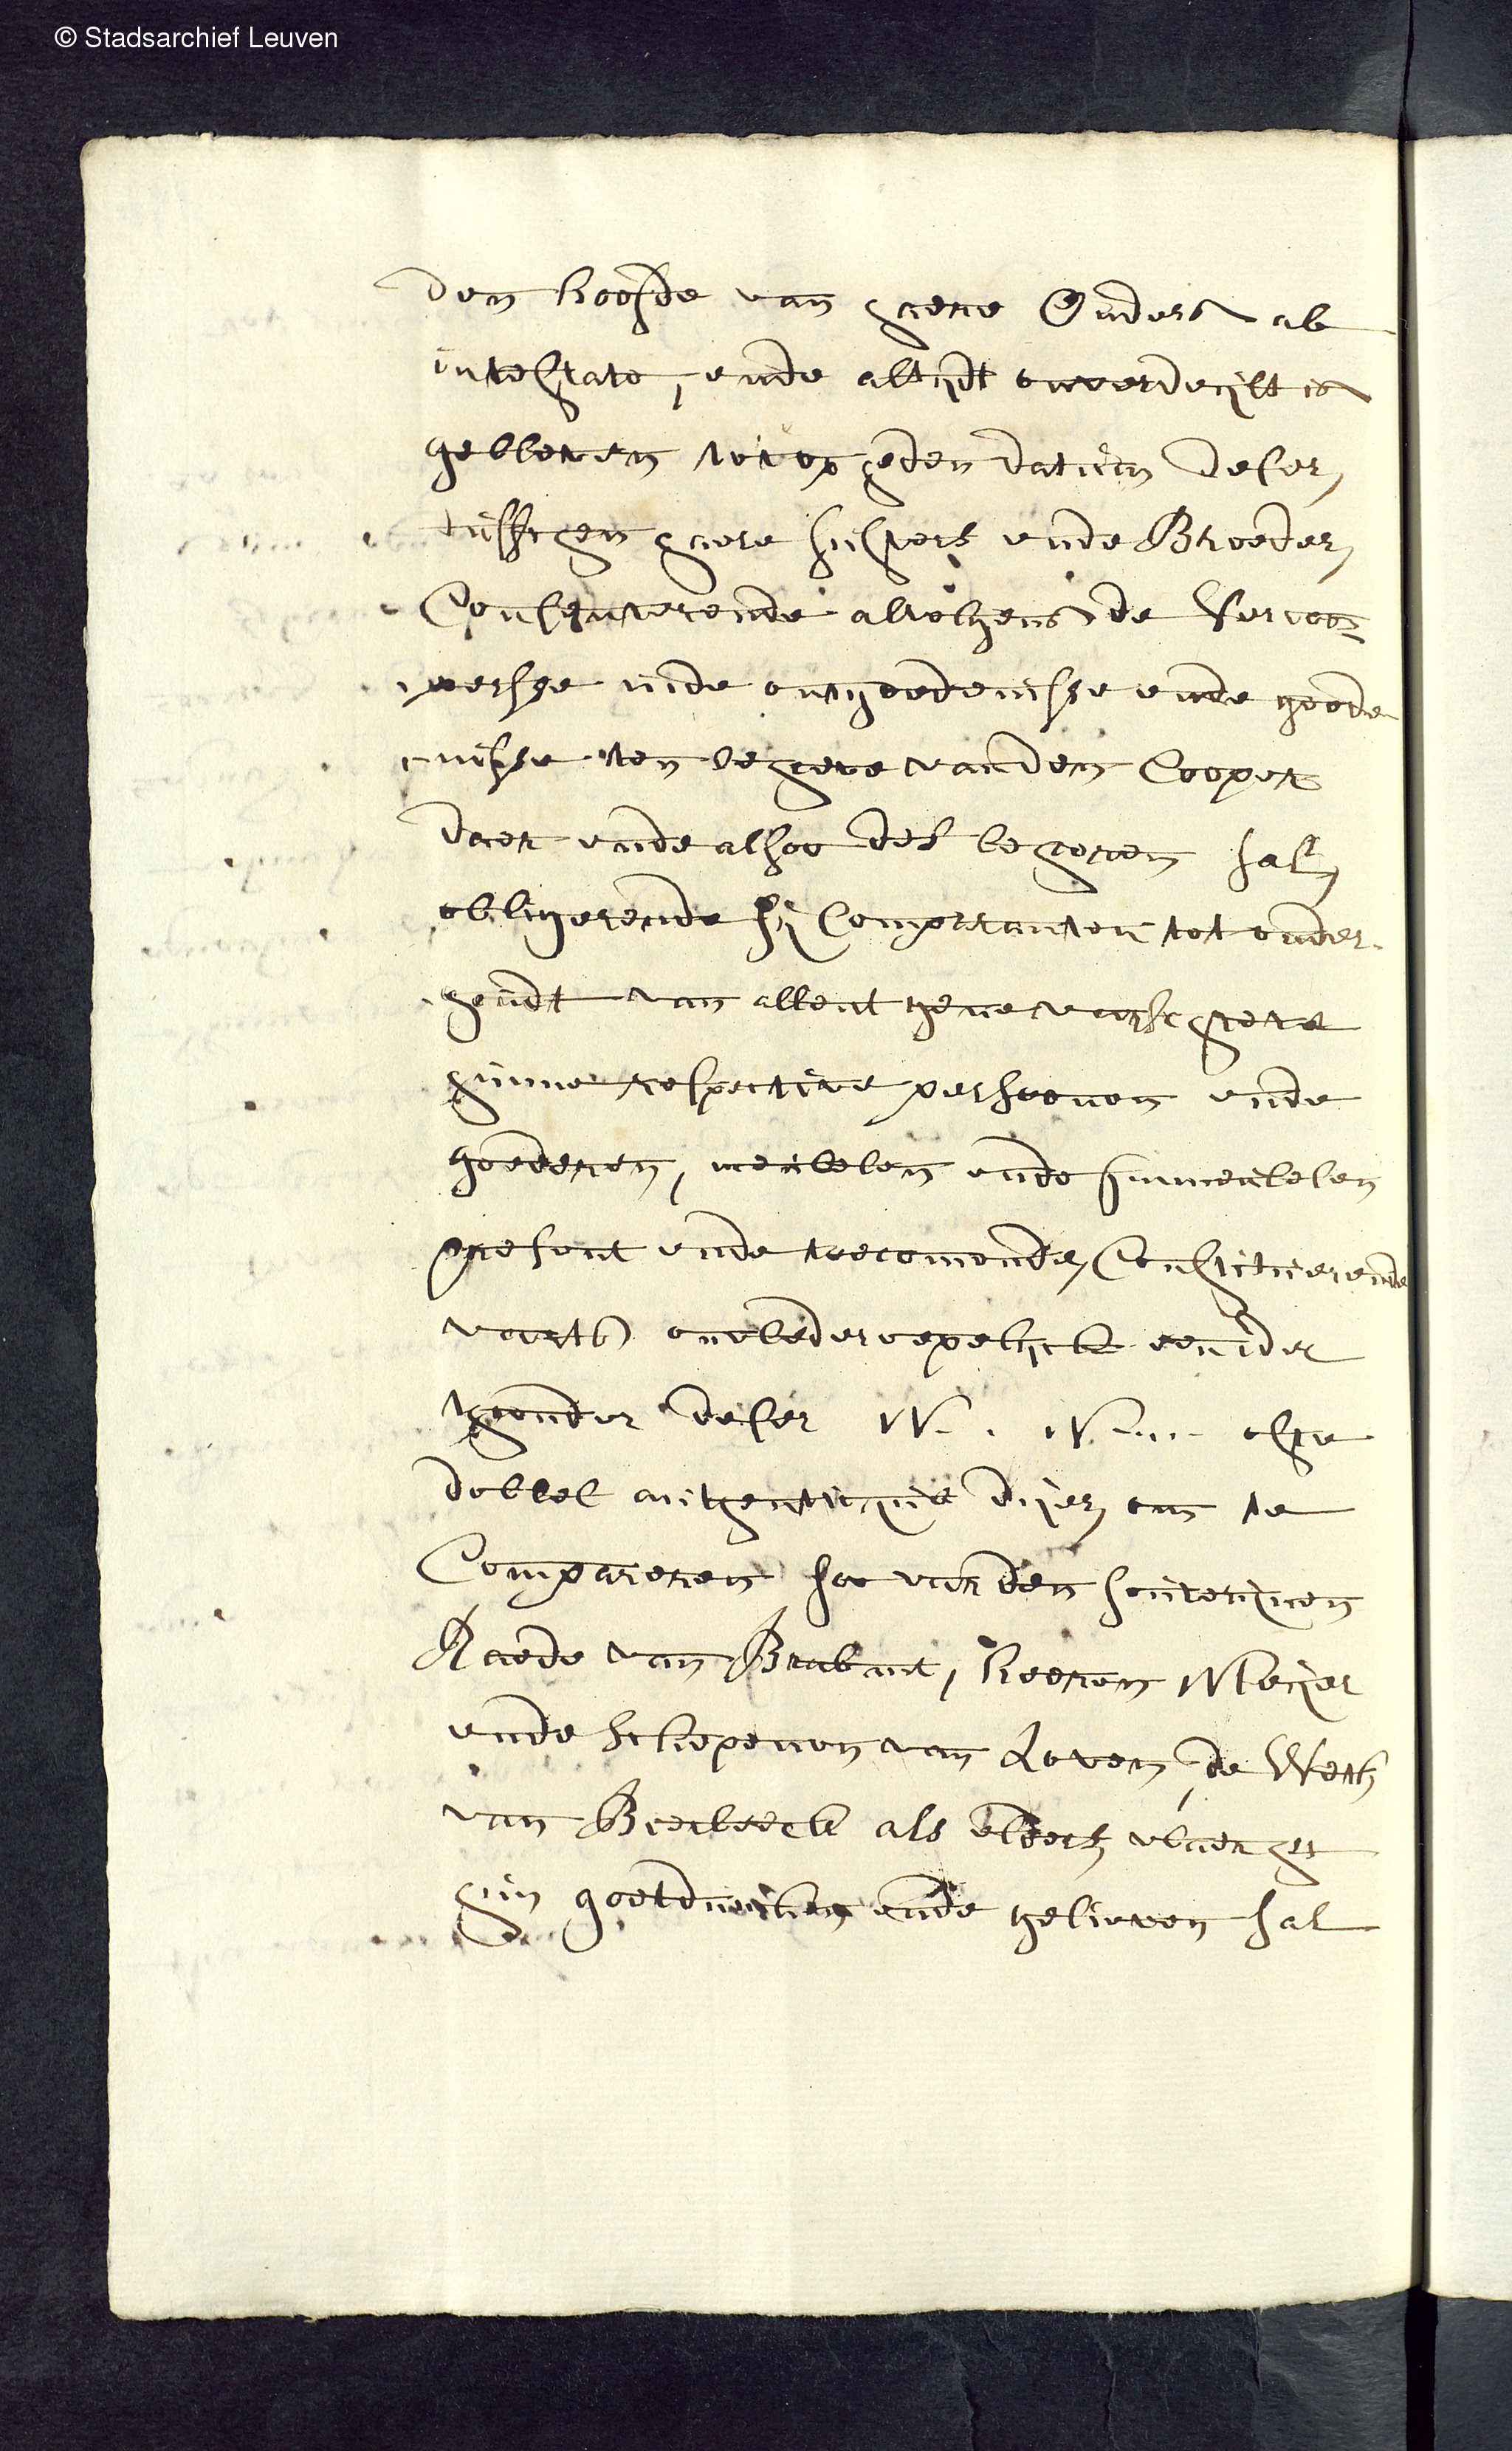 © Stadsarchief Leuven
den hoofde van haere Ouders ab
intestato, ende altijdt onverdeijlt is
gebleven tot op heden datum deser,
tusschen haere susters ende Broeder,
Consenterende alvolgens de Vercoo=
persse inde ontgoedenisse ende goede
nisse ten behoeve vanden Cooper
daer ende alsoo dat behooren sal,
obligerende sij Comparanten tot onder
houdt van allent gene voorschreve
hunne respective persoonen ende
goederen, meubelen ende immeubelen
present ende toecomende, Constituerende
voorts onwederroepelijck een ider
thoonder deser N. . N.... ofte
dobbel authenticque dijer, om te
Compareren soo voor den souverijnen
Raede van Brabant, heeren Meijer
ende Schepenen van Loven, de Weth
van Bierbeeck als elders, waer het
hun goetduncken ende gelieven sal